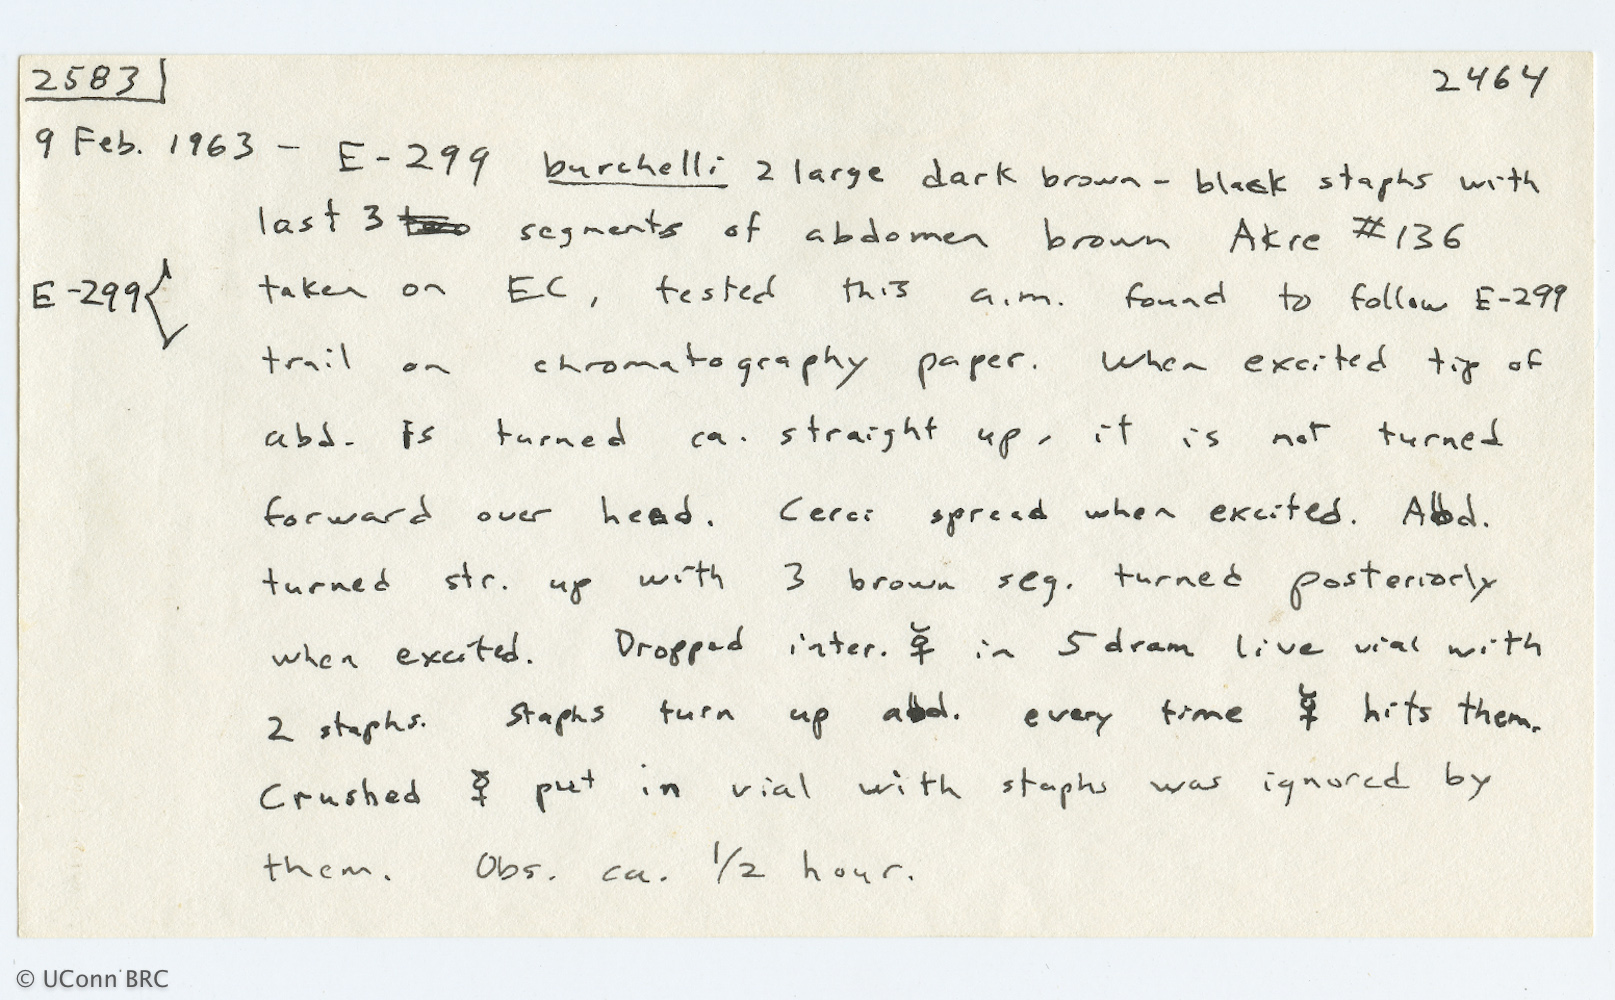 2583 2464
9 Feb. 1963 - E-299 burchelli 2 large dark brown - black staphs with
last 3 segments of abdomen brown Akre #136
E-299 taken on EC, tested this a.m. found to follow E-299
trail on chromatography paper. When excited tip of
abd. is turned ca. straight up, it is not turned
forward over head. Cerci spread when excited. Abd.
turned str. up with 3 brown seg. turned posteriorly
when excited. Dropped inter. ☿ in 5 dram live vial with
2 staphs. Staphs turn up abd. every time ☿ hits them.
Crushed ☿ put in vial with staphs was ignored by
them. Obs. ca. 1/2 hour.
© UConn BRC